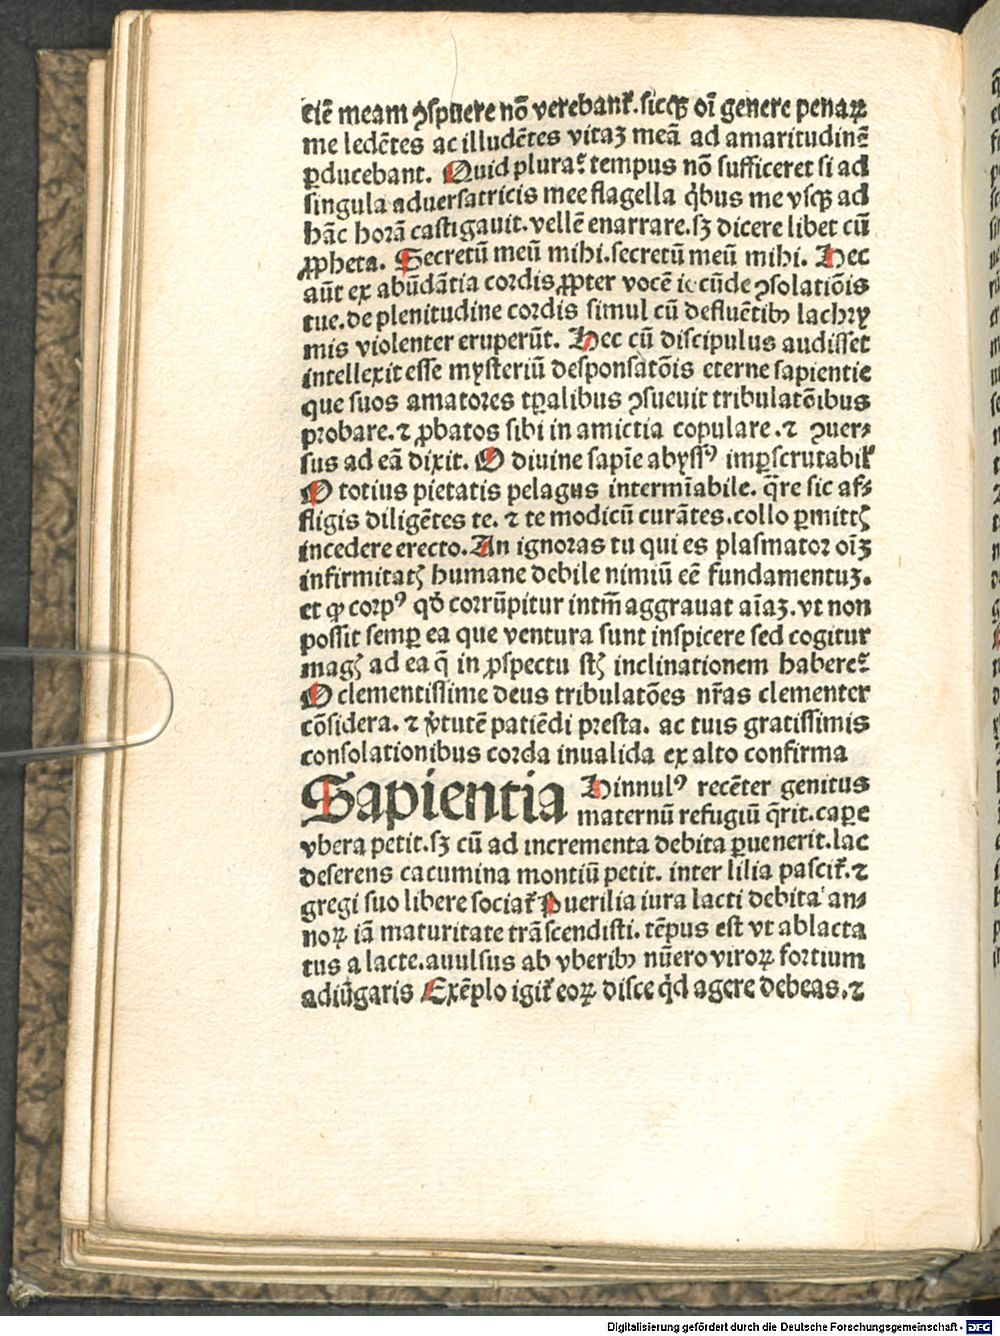 ciē meam ↄspuere nō verebanť. sicqꝫ oī genere penaꝝ
me ledētes ac illudētes vitaꝫ meā ad amaritudinē
ꝑducebant. Quid plura? tempus nō sufficeret si ad
singula aduersatricis mee flagella q̇bus me vsqꝫ ad
hāc horā castigauit. vellē enarrare. sꝫ dicere libet cū
ꝓpheta. Secretū meū mihi. secretū meū mihi. Hec
aūt ex abūdātia cordis ꝓpter vocē iocūde ↄsolatiōis
tue. de plenitudine cordis simul cū defluētibꝫ lachry
mis violenter eruperūt. Hec cū discipulus audisset
intellexit esse mysteriū desponsatōis eterne sapientie
que suos amatores tꝑalibus ↄsueuit tribulatōibus
probare. ⁊ ꝓbatos sibi in amictia copulare. ⁊ ↄuer⸗
sus ad eā dixit. O diuine sapīe abyssꝰ imꝑscrutabił
O totius pietatis pelagus intermīabile. q̄re sic af⸗
fligis diligētes te. ⁊ te modicū curātes. collo ꝑmittꝭ
incedere erecto. An ignoras tu qui es plasmator oīꝫ
infirmitatꝭ humane debile nimiū eē fundamentuꝫ.
et ꝙ corpꝰ qd̄ corrūpitur intm̄ aggrauat aīaꝫ. vt non
possit semꝑ ea que ventura sunt inspicere sed cogitur
magꝭ ad ea q̄ in ꝓspectu stꝭ inclinationem habere?
O clementissime deus tribulatōes nr̄as clementer
cōsidera. ⁊ v̇tutē patiēdi presta. ac tuis gratissimis
consolationibus corda inualida ex alto confirma
Sapientia Hinnulꝰ recēter genitus
maternū refugiū q̄rit. caꝑe
vbera petit. sꝫ cū ad incrementa debita ꝑuenerit. lac
deserens cacumina montiū petit. inter lilia pasciť. ⁊
gregi suo libere sociať Puerilia iura lacti debita an⸗
noꝝ iā maturitate trāscendisti. tēpus est vt ablacta
tus a lacte. auulsus ab vberibꝫ nūero viroꝝ fortium
adiūgaris Exēplo igiť eoꝝ disce qd̓ agere debeas. ⁊
Digitalisierung gefördert durch die Deutsche Forschungsgemeinschaft - DFG